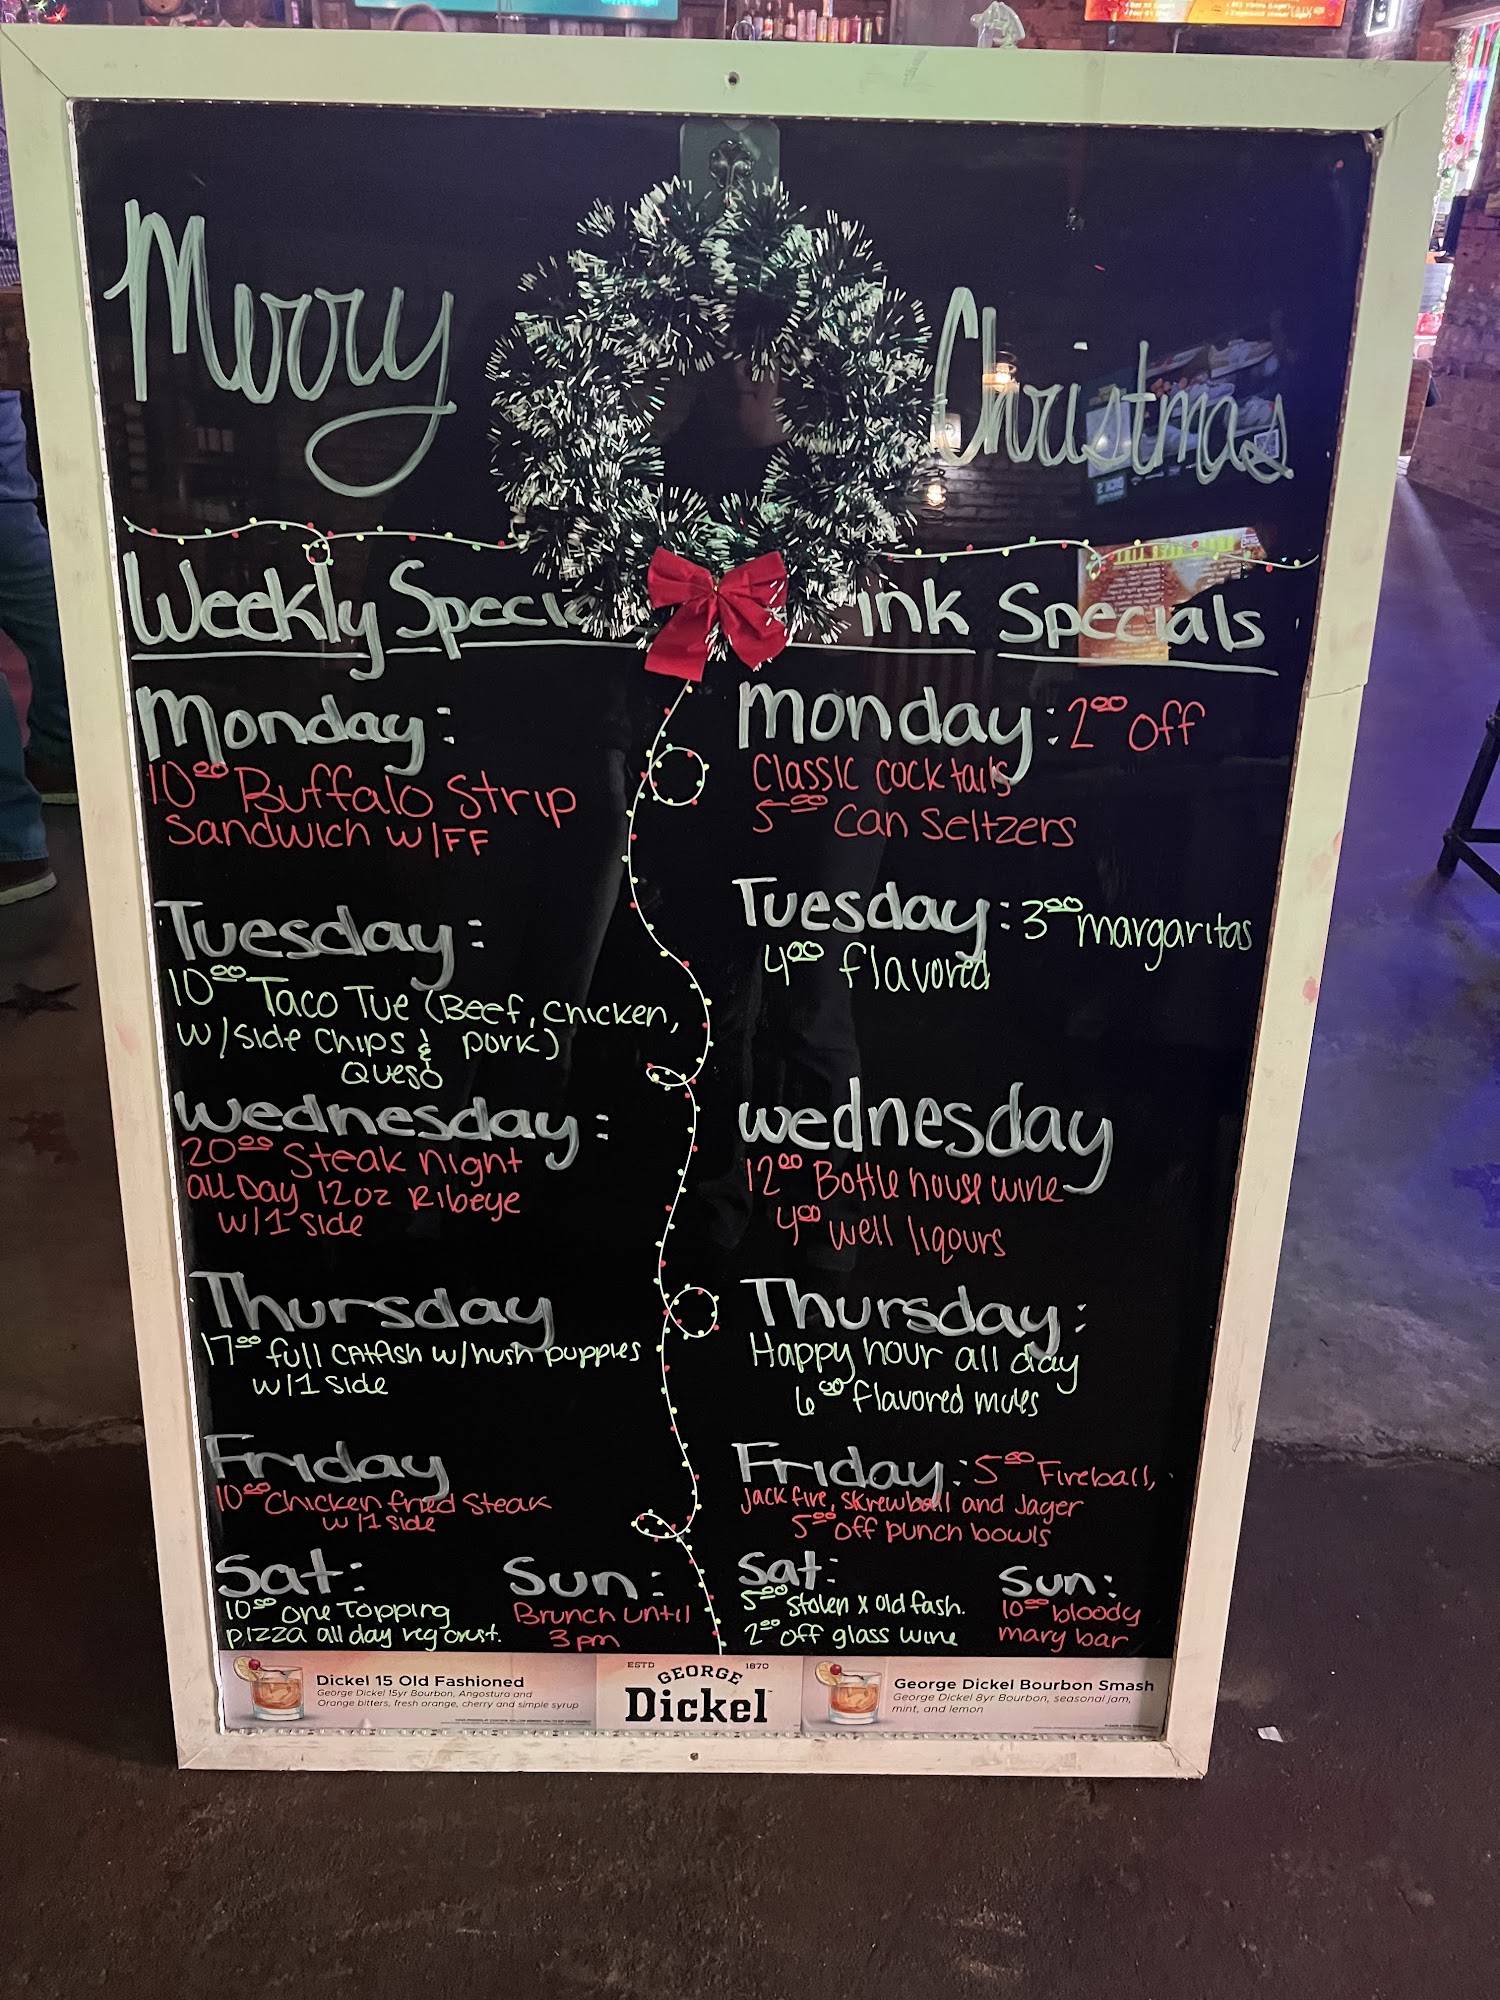 Merry Christmas
Weekly Specia
ink Specials
Monday:
10⁰⁰ Buffalo Strip
Sandwich w/FF
Tuesday:
10⁰⁰ Taco Tue (Beef, Chicken,
w/side Chips & pork)
Queso
Wednesday:
20⁰⁰ Steak night
all Day 12oz Ribeye
w/1 side
Thursday
17⁰⁰ full catfish w/hush puppies
w/1 side
Friday
10⁰⁰ Chicken fried Steak
w/1 side
Sat:
10⁰⁰ one Topping
pizza all day reg crust.
Sun:
Brunch until
3pm
Monday: 2⁰⁰ off
Classic cocktails
5⁰⁰ Can Seltzers
Tuesday: 3⁰⁰ margaritas
4⁰⁰ flavored
Wednesday
12⁰⁰ Bottle house wine
4⁰⁰ well liqours
Thursday:
Happy hour all day
6⁰⁰ flavored mules
Friday: 5⁰⁰ Fireball,
Jack fire, Skrewball and Jager
5⁰⁰ off punch bowls
Sat:
5⁰⁰ Stolen x old fash.
2⁰⁰ off glass wine
Sun:
10⁰⁰ bloody
mary bar
Dickel 15 Old Fashioned
George Dickel 15yr Bourbon, Angostura and
Orange bitters, fresh orange, cherry and simple syrup
ESTD 1870
GEORGE
Dickel
George Dickel Bourbon Smash
George Dickel 8yr Bourbon, seasonal jam,
mint, and lemon